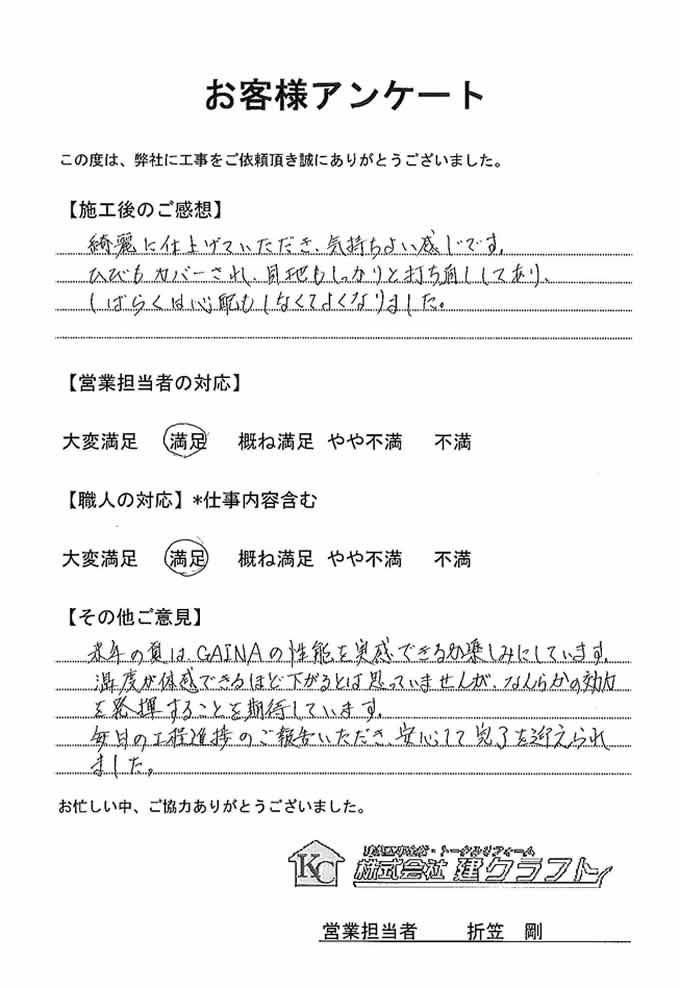 お客様アンケート
この度は、弊社に工事をご依頼頂き誠にありがとうございました。
【施工後のご感想】
綺麗に仕上げていただき、気持ちよい感じです。
ひびもカバーされ、目地もしっかりと打ち直ししてあり、
しばらくは心配もしなくてよくなりました。
【営業担当者の対応】
大変満足 満足 概ね満足 やや不満 不満
【職人の対応】*仕事内容含む
大変満足 満足 概ね満足 やや不満 不満
【その他ご意見】
来年の夏はGAINAの性能を実感できるか楽しみにしています。
温度が体感できるほど下がるとは思っていませんが、なんらかの効力
を発揮することを期待しています。
毎日の工程進捗のご報告いただき、安心して完了を迎えられ
ました。
お忙しい中、ご協力ありがとうございました。
KC
株式会社 建クラフト
営業担当者 折笠 剛